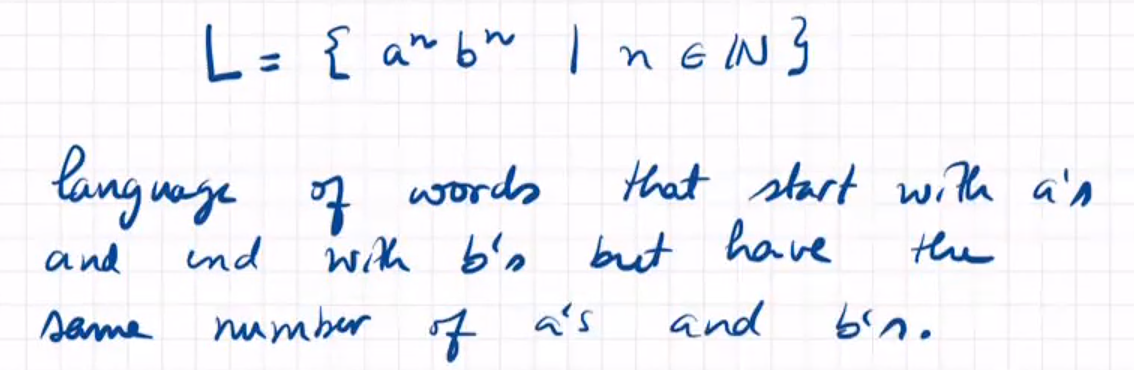 L = { aⁿ bⁿ | n ∈ ℕ }
language of words that start with a's
and end with b's but have the
same number of a's and b's.